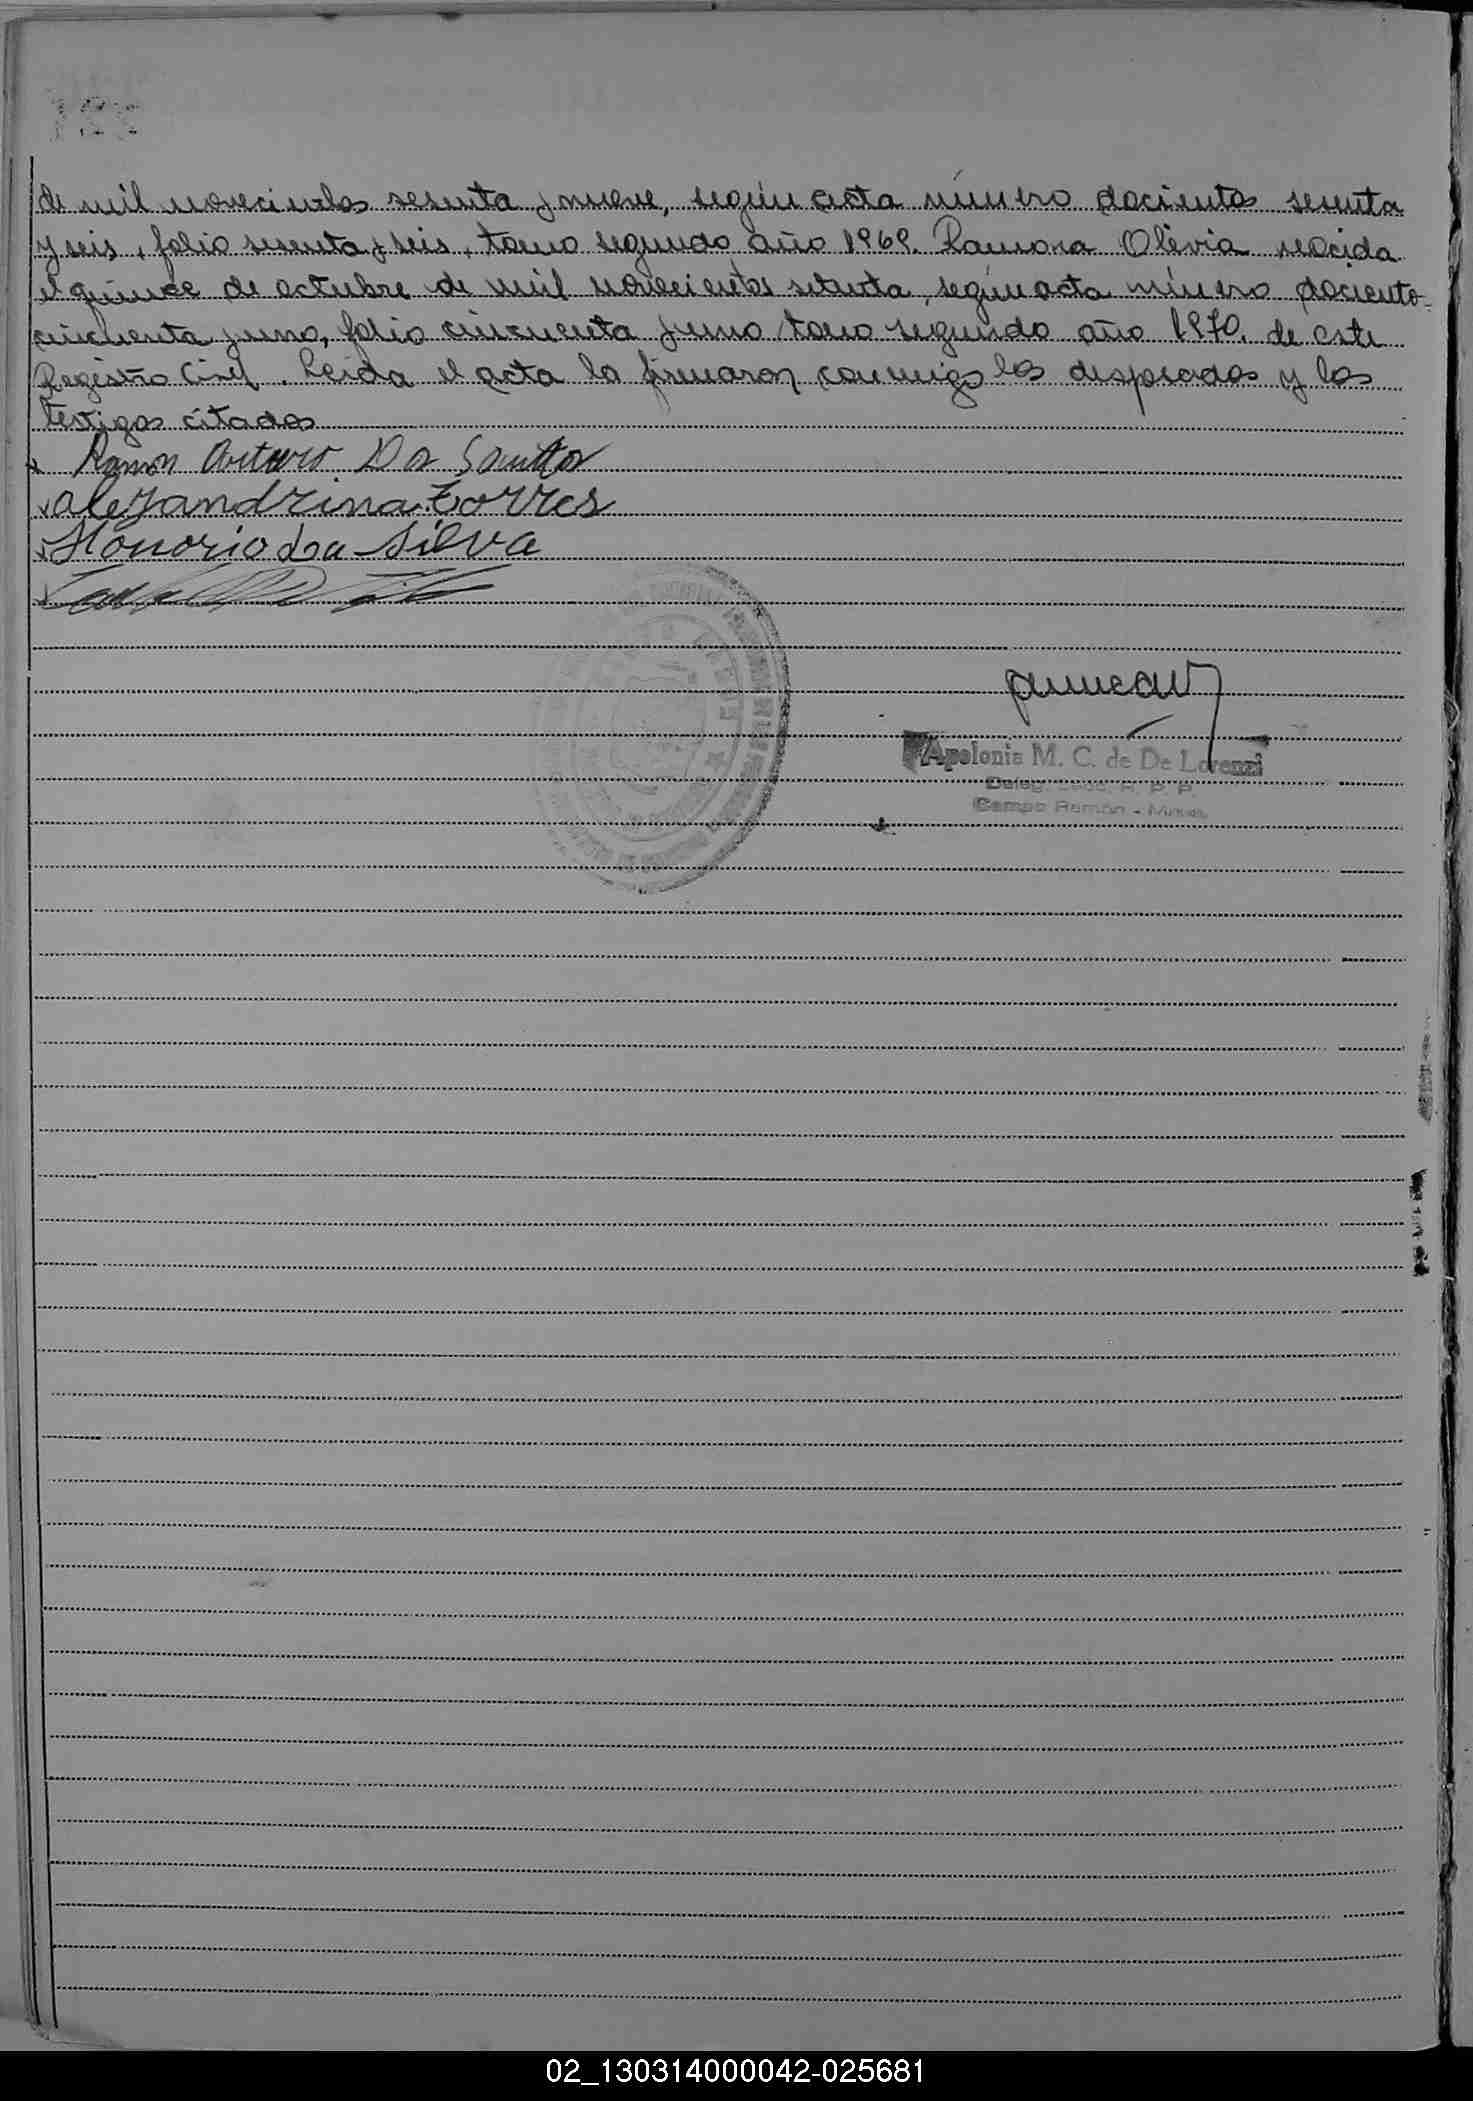 de mil novecientos sesenta y nueve, según acta número docientos sesenta
y seis, folio sesenta y seis, tomo segundo año 1969. Ramona Olivia nacida
el quince de octubre de mil novecientos setenta, según acta número dociento
cincuenta y uno, folio cincuenta y uno tomo segundo año 1970. de este
Registro Civil. Leida el acta la firmaron conmigo los desposados y los
testigos citados
Ramon Arturo Da Santos
alejandrina torres
Honorio da Silva
Apolonia M. C. de De Lorenzi
Deleg. R. P. P.
Campo Ramón - Mnes.
02_130314000042-025681